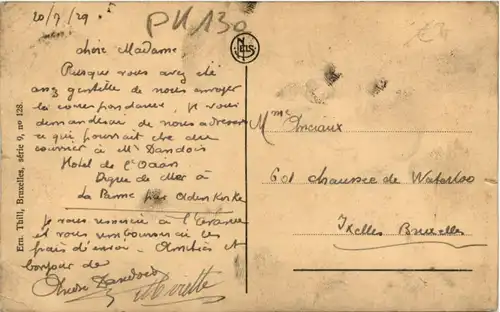 20/7/29.
PK 130
chère Madame,
Puisque vous avez été
assez gentille de nous envoyer
la correspondance, je vous
demanderai de nous adresser
ce qui pourrait être du
courrier à Mr Dandois
Hotel de l'Océan
Digue de Mer à
La Panne par Adenkerke
je vous remercie à l'avance
et vous rembourserai les
frais d'envoi. Amitiés et
bonjour de
Dandois
Mme
601 chaussée de Waterloo
Ixelles Bruxelles
Ern. Thill, Bruxelles, série 9, no 128.